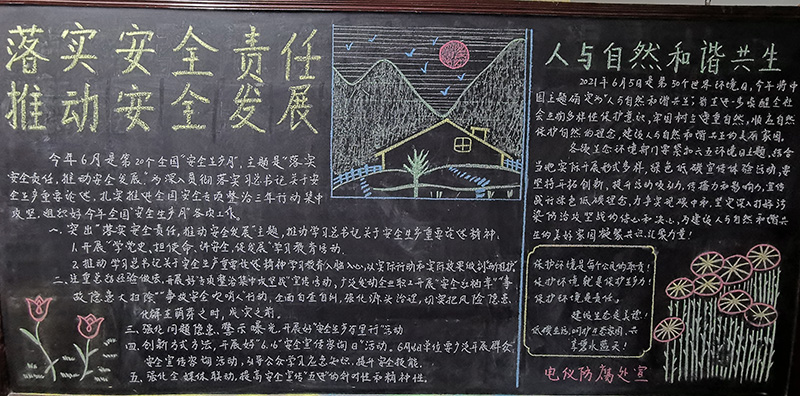 落实安全责任
推动安全发展
今年6月是第20个全国"安全生产月",主题是"落实
安全责任,推动安全发展"。为深入贯彻落实习总书记关于安
全生产重要论述,扎实推进全国安全专项整治三年行动集中
攻坚,组织好今年全国"安全生产月"各项工作。
一、突出"落实安全责任,推动安全发展"主题,推动学习总书记关于安全生产重要论述精神。
1.开展"学党史、担使命、讲安全、促发展"学习教育活动。
2.推动学习总书记关于安全生产重要论述精神学习教育入脑入心,以实际行动和实际效果做到"两个维护"
二、注重总结经验做法,开展好专项整治集中攻坚战"宣传活动,广泛发动企业职工开展"安全台帐本""事
故隐患大扫除""争做安全吹哨人"行动,全面自查自纠,强化源头治理,切实把风险隐患
化解在萌芽之时,成灾之前。
三、强化问题隐患、警示曝光,开展好"安全生产万里行"活动
四、创新方式方法,开展好"6.16"安全宣传咨询日"活动。6月16日单位要广泛开展群众
安全宣传咨询活动,引导公众学习应急知识、提升安全技能。
五、强化全媒体联动,提高安全宣传"五进"的针对性和精神性。
人与自然和谐共生
2021年6月5日是第50个世界环境日,今年将中
国主题确定为"人与自然和谐共生",旨在进一步唤醒全社
会生物多样性保护意识,牢固树立尊重自然,顺应自然
保护自然的理念,建设人与自然和谐共生的美丽家园。
各级生态环境部门要紧扣六五环境日主题,结合
当地实际开展形式多样,绿色低碳宣传体验活动,要
坚持开拓创新,提升活动吸引力,传播力和影响力,宣传
践行绿色低碳理念,力争实现碳中和,坚定深入打好污
染防治攻坚战的信心和决心,为建设人与自然和谐共
生的美好家园凝聚共识,汇聚力量!
保护环境是每个公民的职责!
保护环境就是保护生产力!
保护环境是责任。
建设生态是美德!
低碳生活,呵护生态家园,共
享碧水蓝天!
电仪防腐处宣